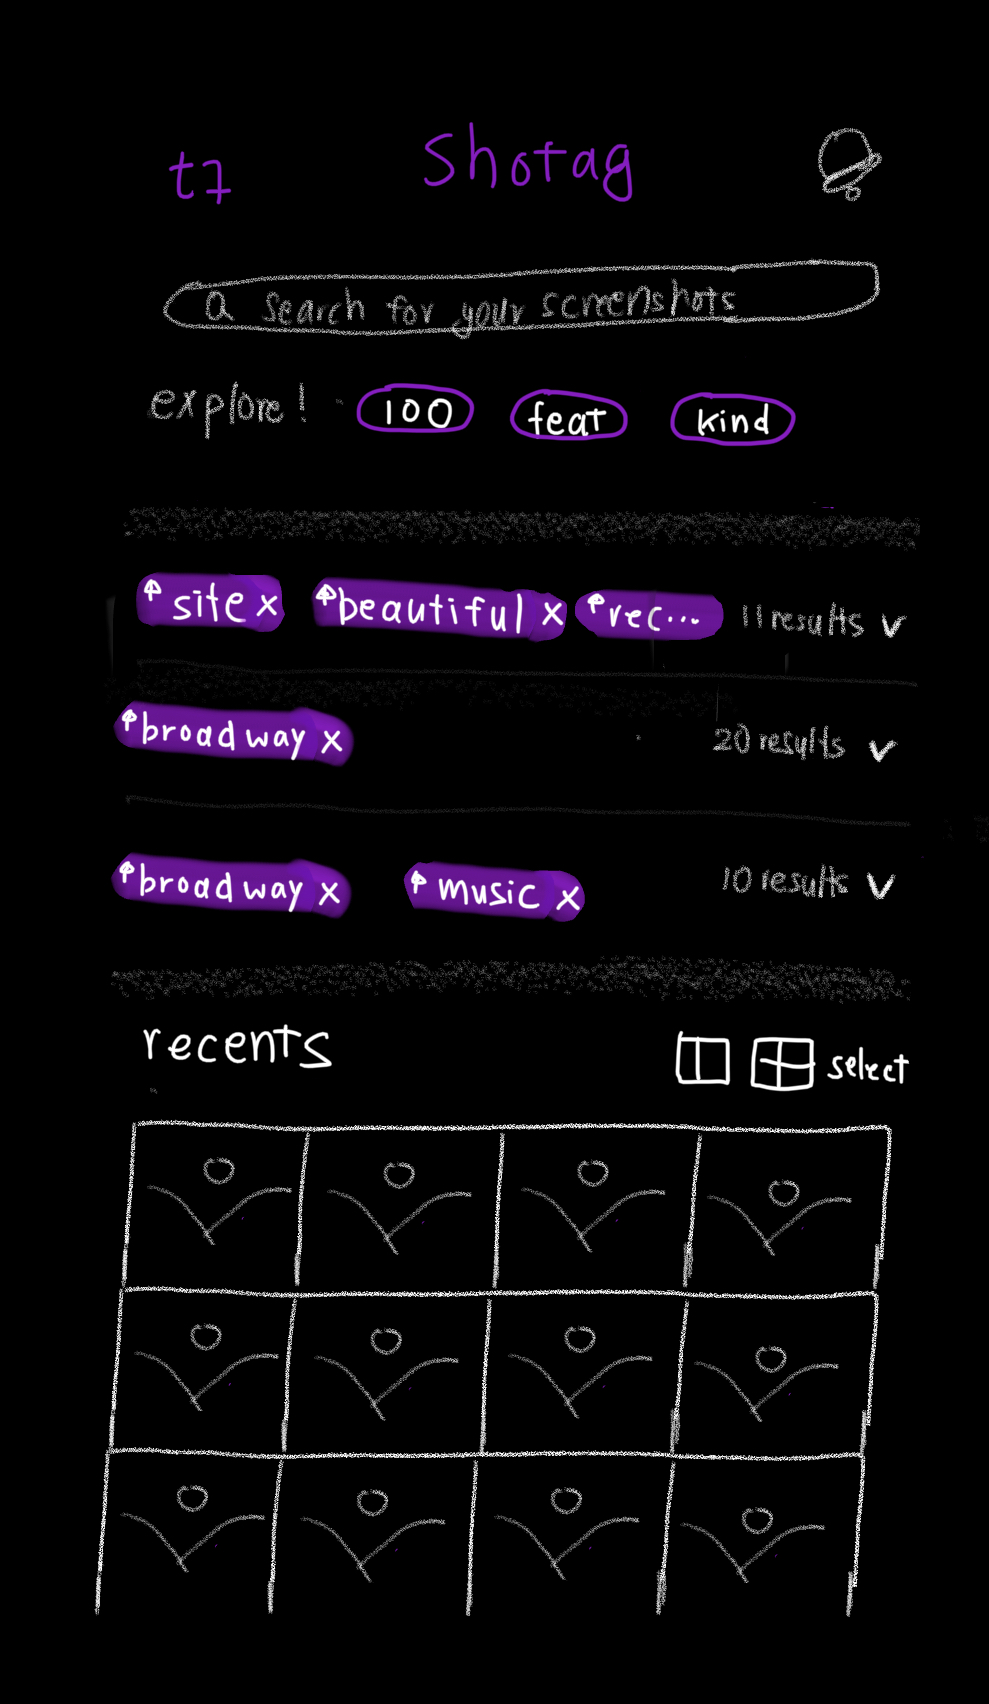 t7 Shotag
Search for your screenshots
explore! 100 feat kind
site x beautiful x rec... 11 results
broadway x 20 results
broadway x music x 10 results
recents select